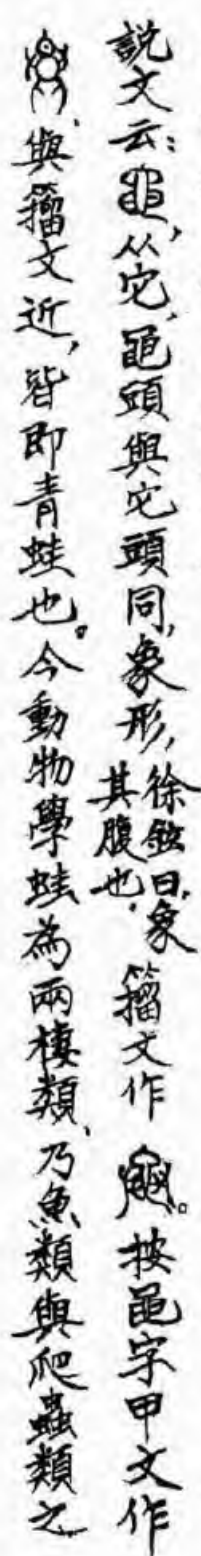 説文云：黽，从它，黽頭與它頭同，象形，徐鉉曰，象其腹也，籀文作。按黽字甲文作
，與籀文近，皆即青蛙也。今動物學蛙為兩棲類、乃魚類與爬蟲類之